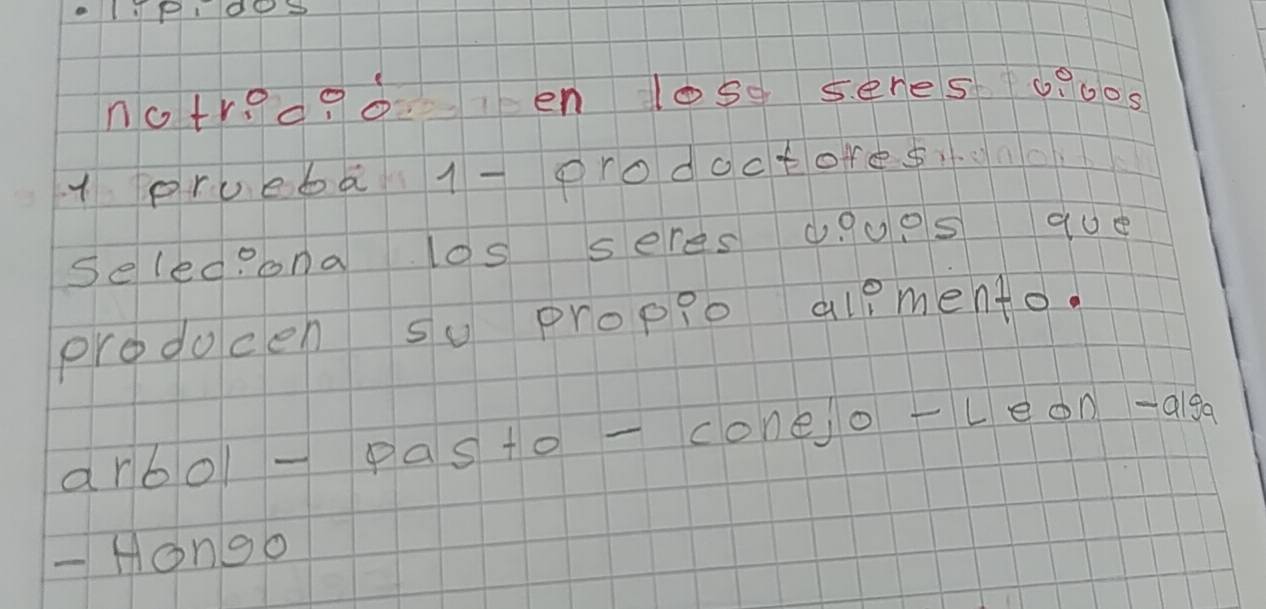 • lípidos
nutrició en los seres vivos
1 prueba 1 - productores
seleciona los seres vivos que
producen su propio alimento.
arbol - pasto - conejo - Leon - alga
- Hongo